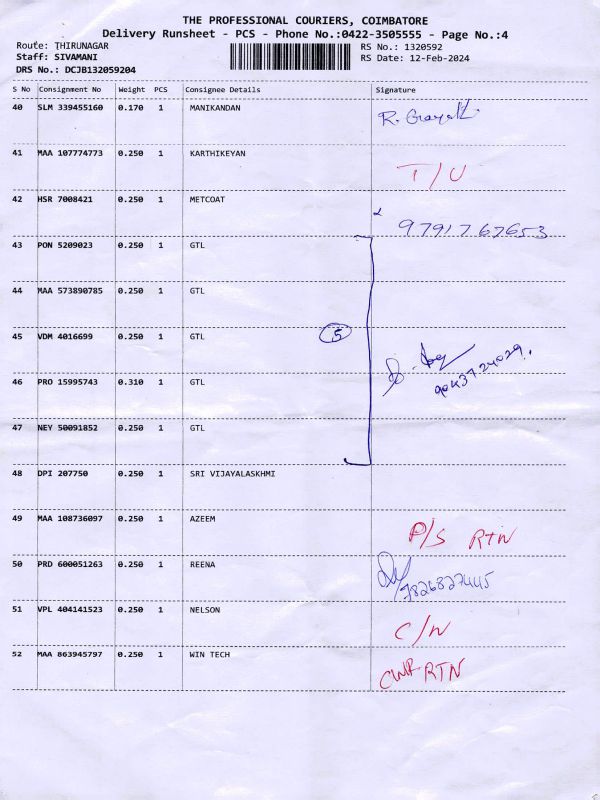 THE PROFESSIONAL COURIERS, COIMBATORE
Delivery Runsheet - PCS - Phone No.:0422-3505555 - Page No.:4
Route: THIRUNAGAR
RS No.: 1320592
Staff: SIVAMANI
RS Date: 12-Feb-2024
DRS No.: DCJB132059204
S No Consignment No Weight PCS Consignee Details Signature
40 SLM 339455160 0.170 1 MANIKANDAN
41 MAA 107774773 0.250 1 KARTHIKEYAN T/U
42 HSR 7008421 0.250 1 METCOAT
9791767653
43 PON 5209023 0.250 1 GTL
44 MAA 573890785 0.250 1 GTL
45 VDM 4016699 0.250 1 GTL 5
46 PRO 15995743 0.310 1 GTL
47 NEY 50091852 0.250 1 GTL
48 DPI 207750 0.250 1 SRI VIJAYALASKHMI
49 MAA 108736097 0.250 1 AZEEM P/S RTN
50 PRD 600051263 0.250 1 REENA
51 VPL 404141523 0.250 1 NELSON C/N
52 MAA 863945797 0.250 1 WIN TECH RTN